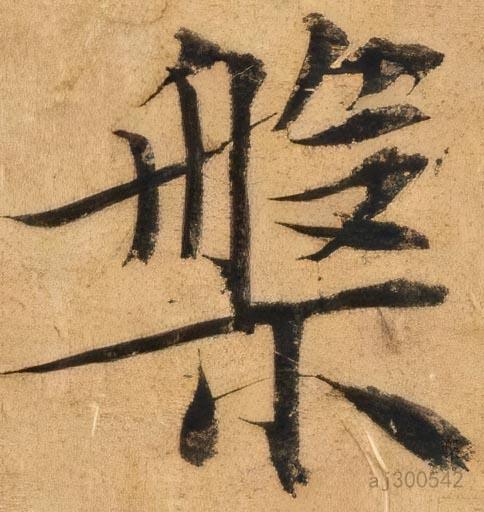 槃
aj300542